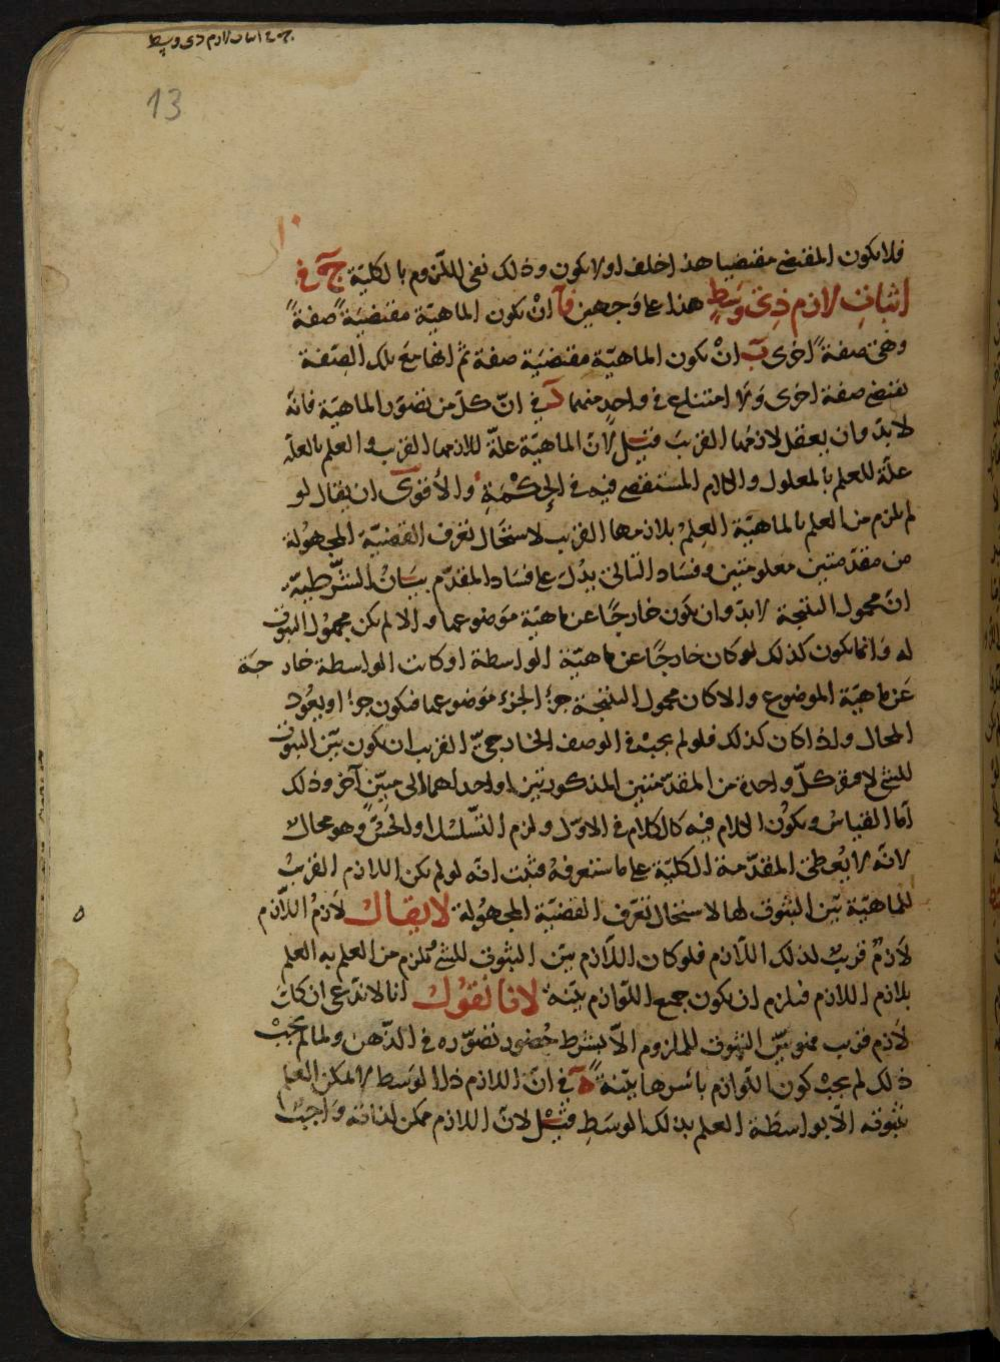 13
فلا يكون المقتضي مقتضيا هذا خلف او لا يكون وذلك نفى للزوم بالكلية ج في
اثبات لازم ذى وسط هذا على وجهين آ ان يكون الماهية مقتضية صفة
وهى صفة اخرى ب ان يكون الماهية مقتضية صفة ثم انها مع تلك الصفة
تقتضي صفة اخرى ولا امتناع في واحد منهما د في ان كل من تصور الماهية فانه
لا بد وان يعقل لازمها القريب قيل لان الماهية علة للازمها القريب والعلم بالعلة
علة للعلم بالمعلول والكلام المستقصى فيه في الحكمة والأقوى ان يقال لو
لم يلزم من العلم بالماهية العلم بلازمها القريب لاستحال تعرف القضية المجهولة
من مقدمتين معلومتين وفساد التالى يدل على فساد المقدم بيان الشرطية
ان محمول النتيجة لا بد وان يكون خارجا عن ماهية موضوعها والا لم يكن مجهول الثبوت
له وانما يكون كذلك لو كان خارجا عن ماهية الواسطة او كانت الواسطة خارجة
عن ماهية الموضوع والا كان محمول النتيجة جزء الجزء موضوعها فيكون جزءا ويعود
المحال واذا كان كذلك فلو لم يجب في الوصف الخارجي القريب ان يكون بين الثبوت
للشئ لافتقر كل واحدة من المقدمتين المذكورتين او احداهما الى مبين آخر وذلك
اما القياس ويكون الكلام فيه كالكلام في الاول ولزم التسلسل او الحس وهو محال
لانه لا يعطى المقدمة الكلية على ما ستعرفه فثبت انه لو لم يكن اللازم القريب
للماهية بين الثبوت لها لاستحال تعرف القضية المجهولة لا يقال لازم اللازم
لازم قريب لذلك اللازم فلو كان اللازم بين الثبوت للشئ يلزم من العلم به العلم
بلازم اللازم فيلزم ان يكون جميع اللوازم بينة لانا نقول انا لا ندعى ان كل
لازم قريب فهو بين الثبوت للملزوم الا بشرط حضور تصوره في الذهن ولما لم يجب
ذلك لم يجب كون اللوازم باسرها بينة ه في ان اللازم ذا الوسط لا يمكن العلم
بثبوته الا بواسطة العلم بذلك الوسط قيل لان اللازم ممكن لذاته واجب